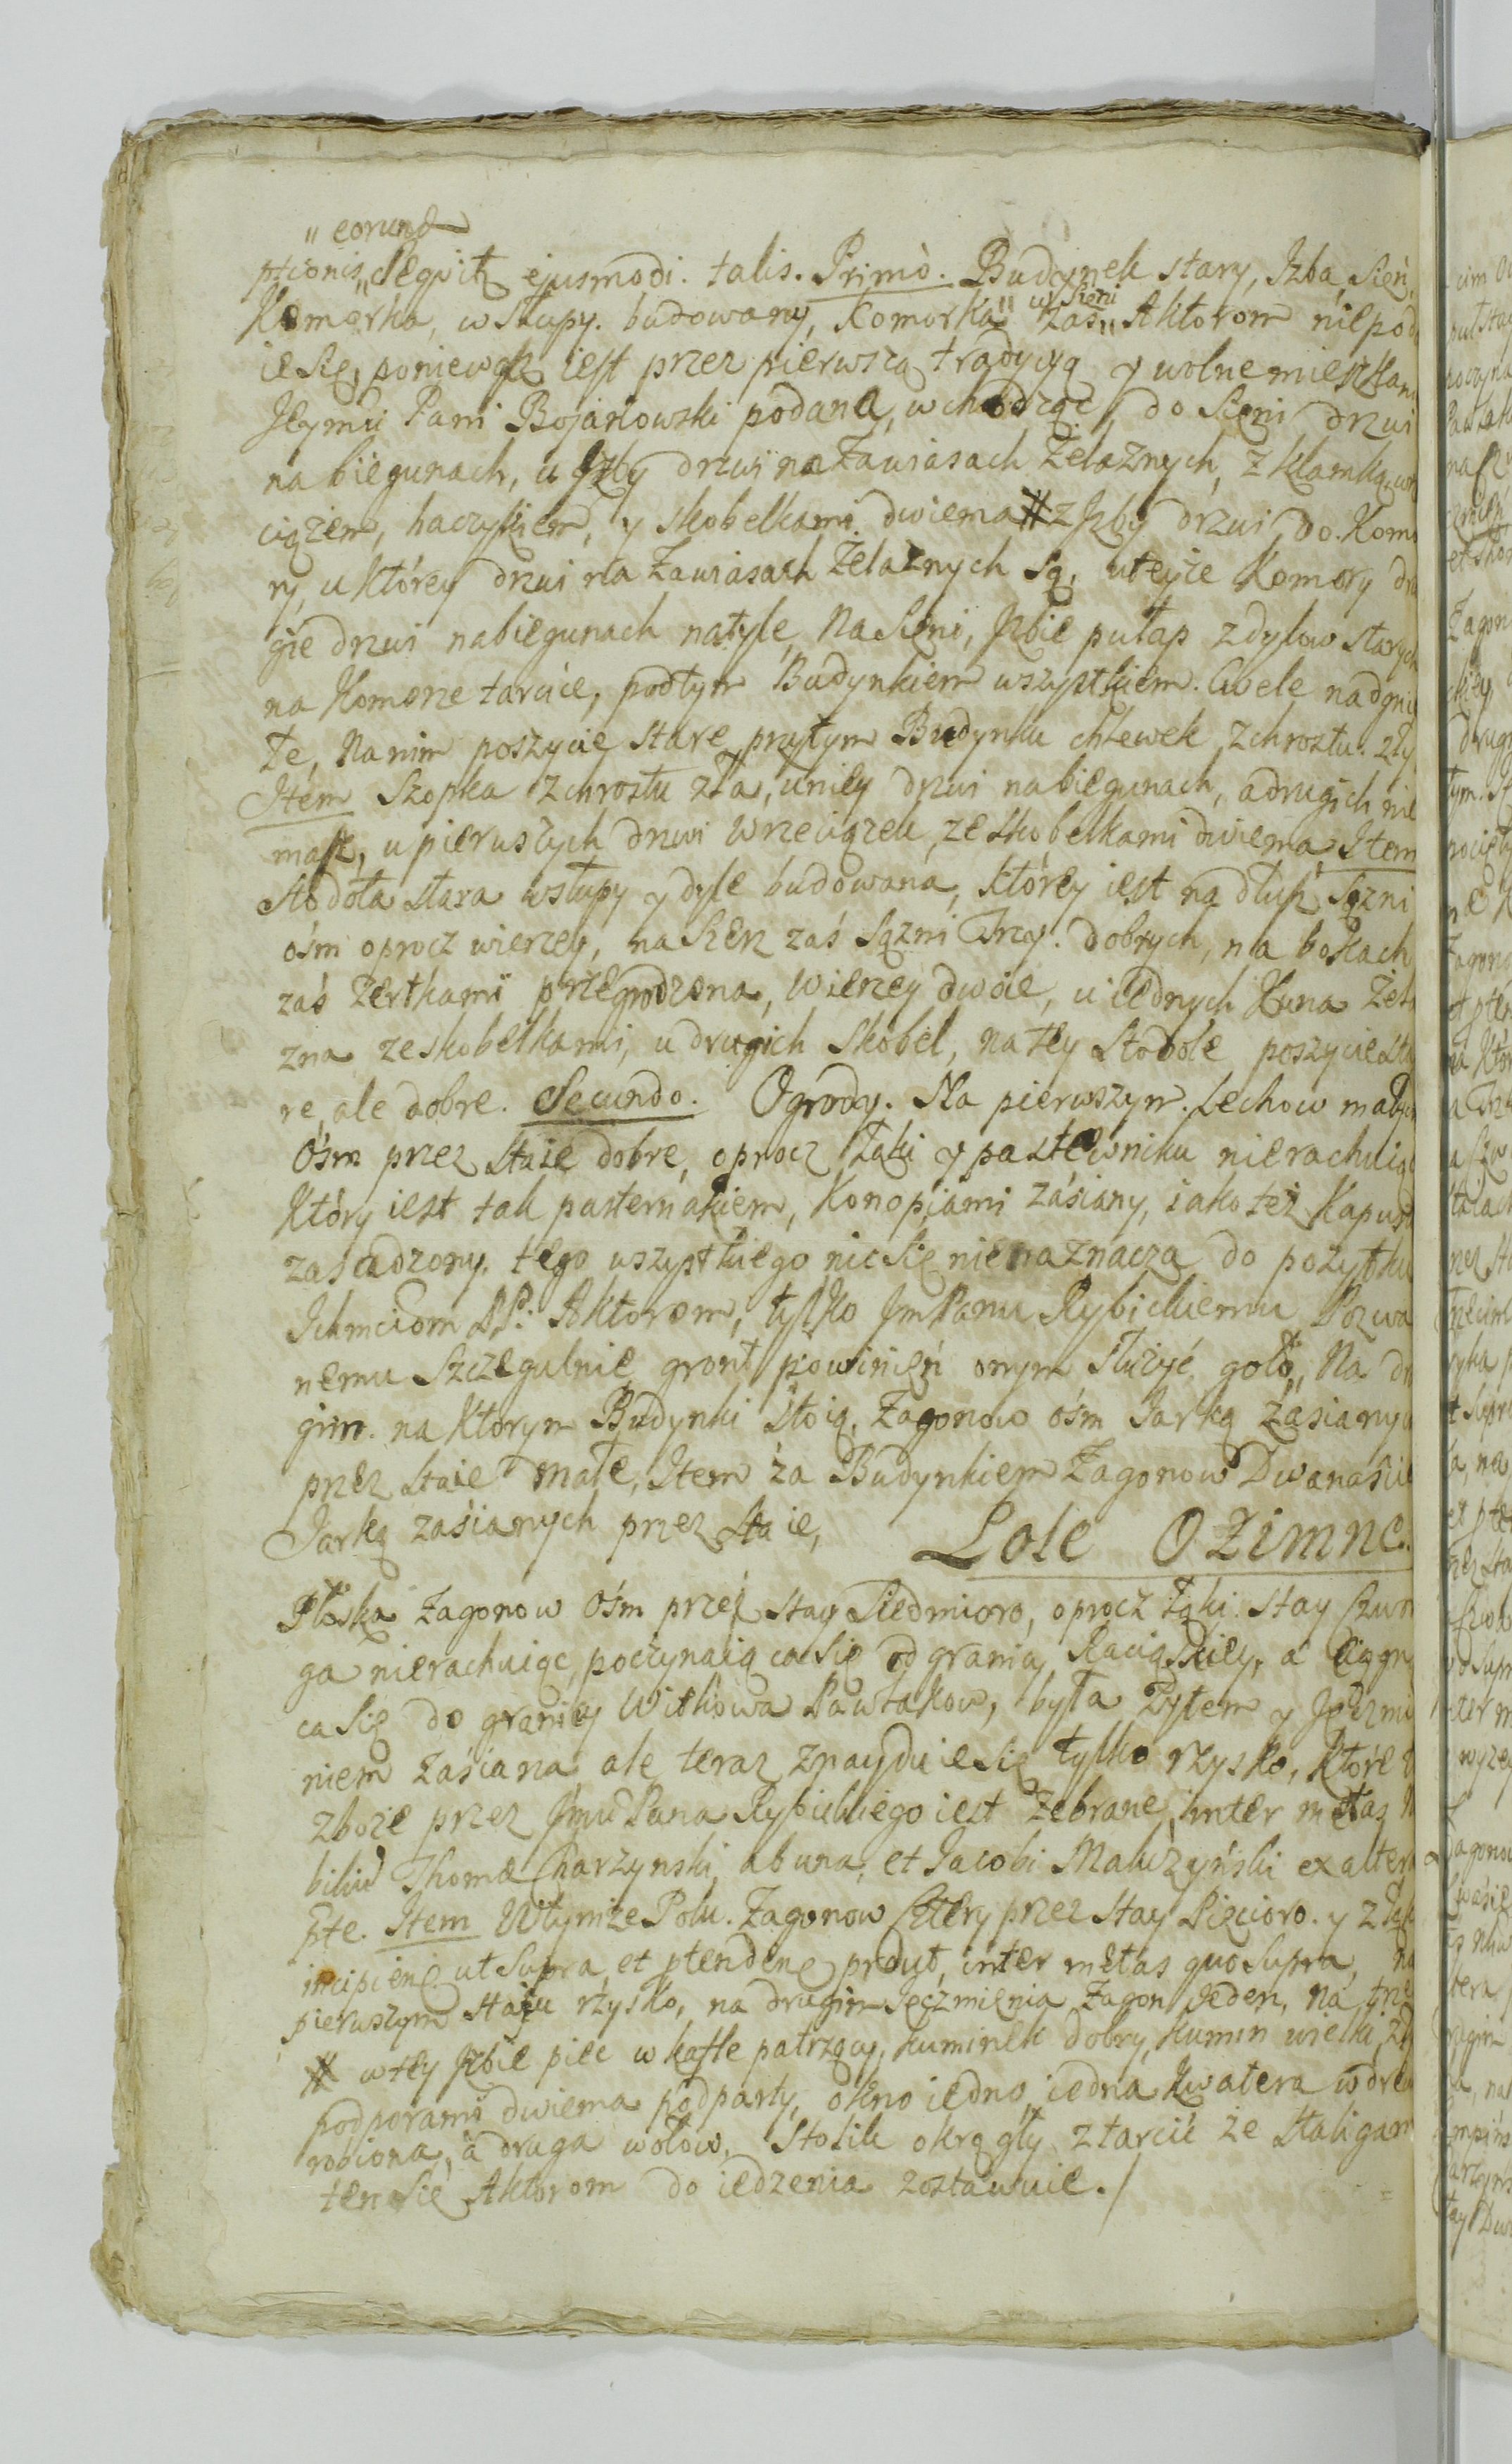 „ eorund
ptionis „ seqvit ejusmodi. talis. Primò. Budynek stary, Izba, Sień,
Komorka, w słupy. budowany, Komorka „ w Sieni zaś „ Aktorom niepod
ie się, poniewasz iest przez pierwszą tradycyą y wolne mieszkan
Jeymci Pani Bojanowski podana, wchodząc, do Sieni drzwi
na biegunach, u Izby drzwi na Zawiasach Żelaznych, z klamką, wr
ciążem, haczykiem, y skobelkami dwiema # z Izby drzwi do Komo
ry, u którey drzwi na Zawiasach Żelaznych są, uteyże Komory dru
gie drzwi nabiegunach natyle, Na Sieni, Izbie pułap z dylow starych
na Komorze tarcice, podtym Budynkiem wszystkiem. Cwele nadgni
łe, Na nim poszycie stare, przytym Budynku chlewek, z chrostu. zły
Item Szopka z chrostu zła, uniey drzwi nabiegunach, adrugich nie
masz, u pierwszych drzwi wrzeciążek, ze skobelkami dwiema, Item
Stodoła stara w słupy y dyle budowana, którey iest na dłusz Sążni
ośm oprocz wierzey, na szerz zaś Sążni Trzy. dobrych, na bokach
zaś żertkami przegrodzona, Wierzey dwoie, u iednych Kuna Żela
zna ze skobelkami, u drugich skobel, na tey Stodole poszycie sta
re, ale dobre. Secundo. Ogrody. Na pierwszym. Lechow małych
Ośm przez staie dobre, oprocz Łąki y pastewniku nierachuiąc
Który iest tak pasternakiem, Konopiami zasiany, iako też Kapust
zasadzony. tego wszystkiego nic się nienaznacza do pożytku
Ichmciom PP: Aktorom, tylko Jm Panu Rybickiemu Pozwa
nemu szczegulnie gront powinien onym służyć goło „ Na dru
gim. na ktorym Budynki stoią, Zagonow ośm Jarką zasianych
przez staie małe, Item za Budynkiem Zagonow Dwanaście
Jarką zasianych przez staie,
Pole Ozimne.
Płoska zagonow Ośm przez stay Siedmioro, oprocz Łąki. stay Czwor
ga nierachuiąc, poczynaiąca się od granicy Raciąskiey, a ciągną
ca się do granicy Witkowa Pawłakow, była żytem y Jęczmie
niem zasiana, ale teraz znayduie się tylko rżysko, które
zboże przez Jmci Pana Rybickiego iest zebrane, inter metas
biliu Thomæ Charzynski, ab una, et Jacobi Maluzyński ex altera
pte. Item W tymże Polu. Zagonow Cztery przez stay Pięcioro. y z Łąk
incipien ut Supra, et ptenden prout, inter metas quo Supra, na
pierwszym staju rżysko, na drugim Jęczmienia Zagon Jeden, na trze
# w tey Izbie piec w kafle patrzący, kuminek dobry, kumin wielki, z
podporami dwiema podparty, okno iedno, iedna kwatera w drew
robiona, a druga w ołow, stolik okrągły z tarcic ze stalugam
ten się Aktorom do iedzenia zostawuie./